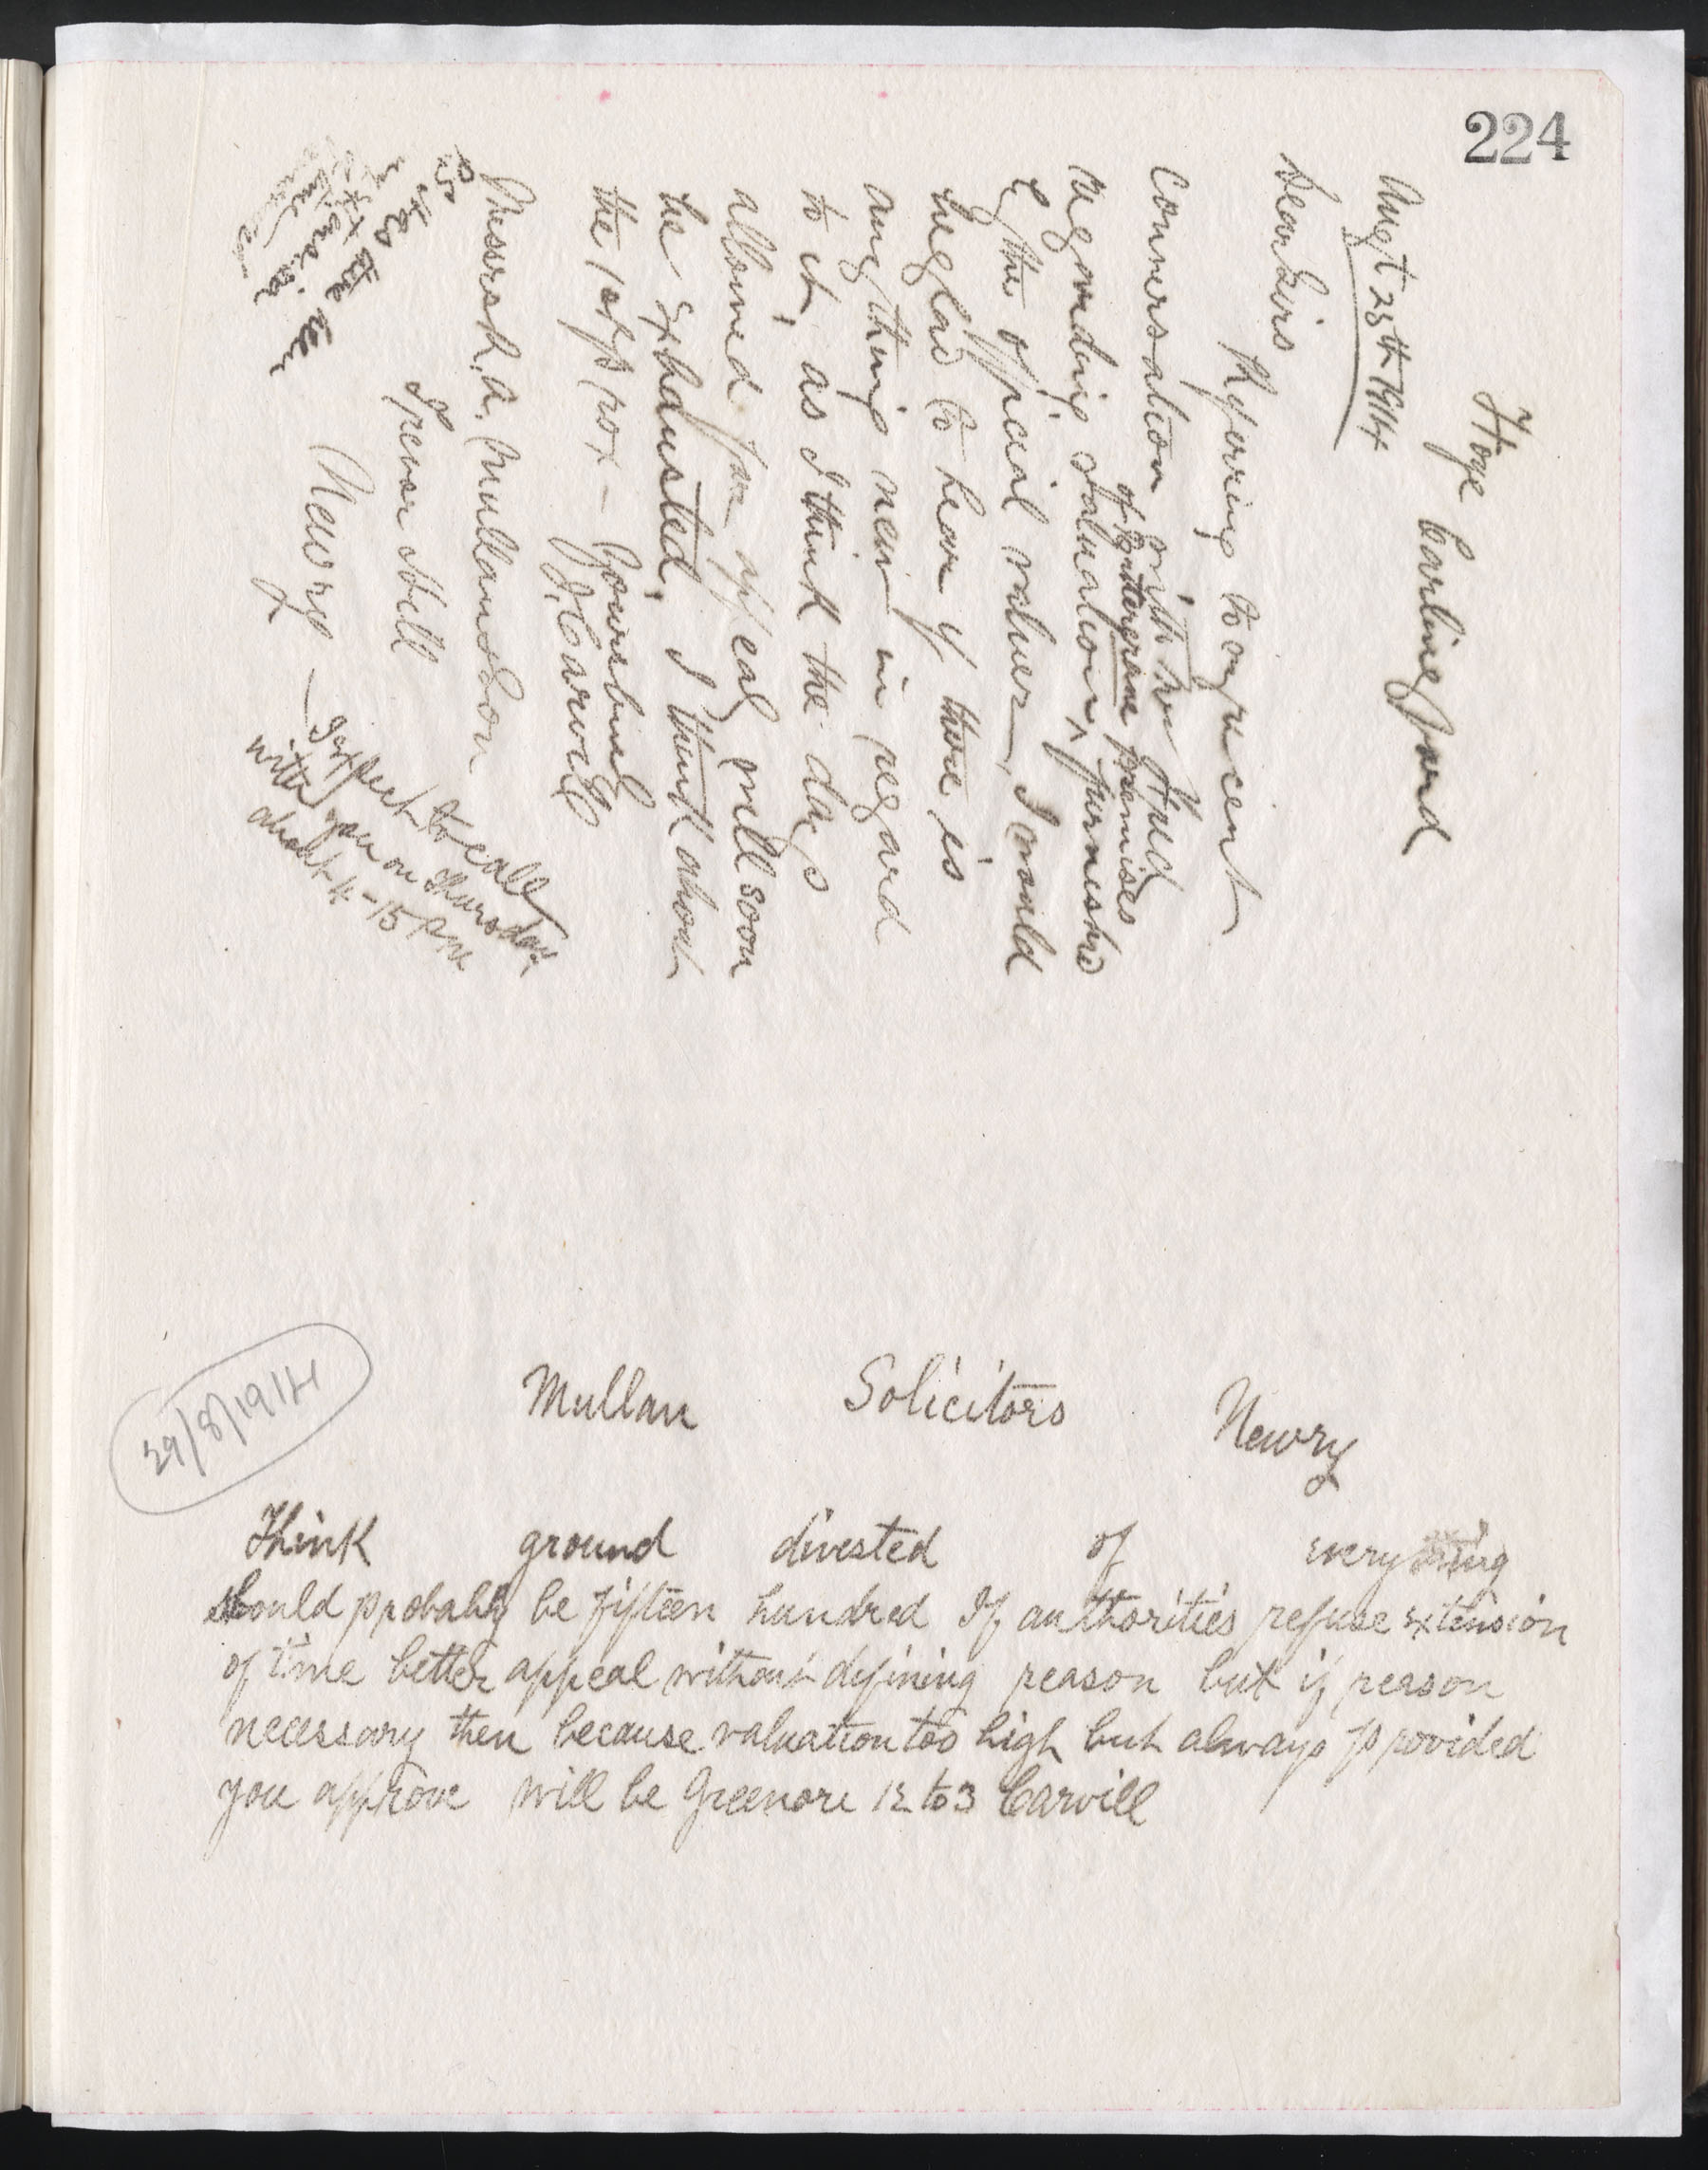 224
Hoge Carlingford
Augt 25th 1914
Dear Sirs
Referring to my recent
Conversation with Mr Fred
of Intergrane premises
regarding valuation, furnished
by the official valuer, I would
be glad to hear if there is
anything new in regard
to it, as I think the days
allowed for appeal will soon
be exhausted. I think about
the 1st prox – Yours truly
J. Carvill
Messrs h. a. Mullan & Son
Trevor Hill
Newry –
I expect to call
with you on Thursday
about 4-15 pm
29/8/1914
Mullan Solicitors Newry
Think ground divested of everything
should probably be fifteen hundred If authorities refuse extension
of time better appeal without defining reason but if reason
necessary then because valuation too high but always provided
you approve will be Greenore 12 to 3 Carvill